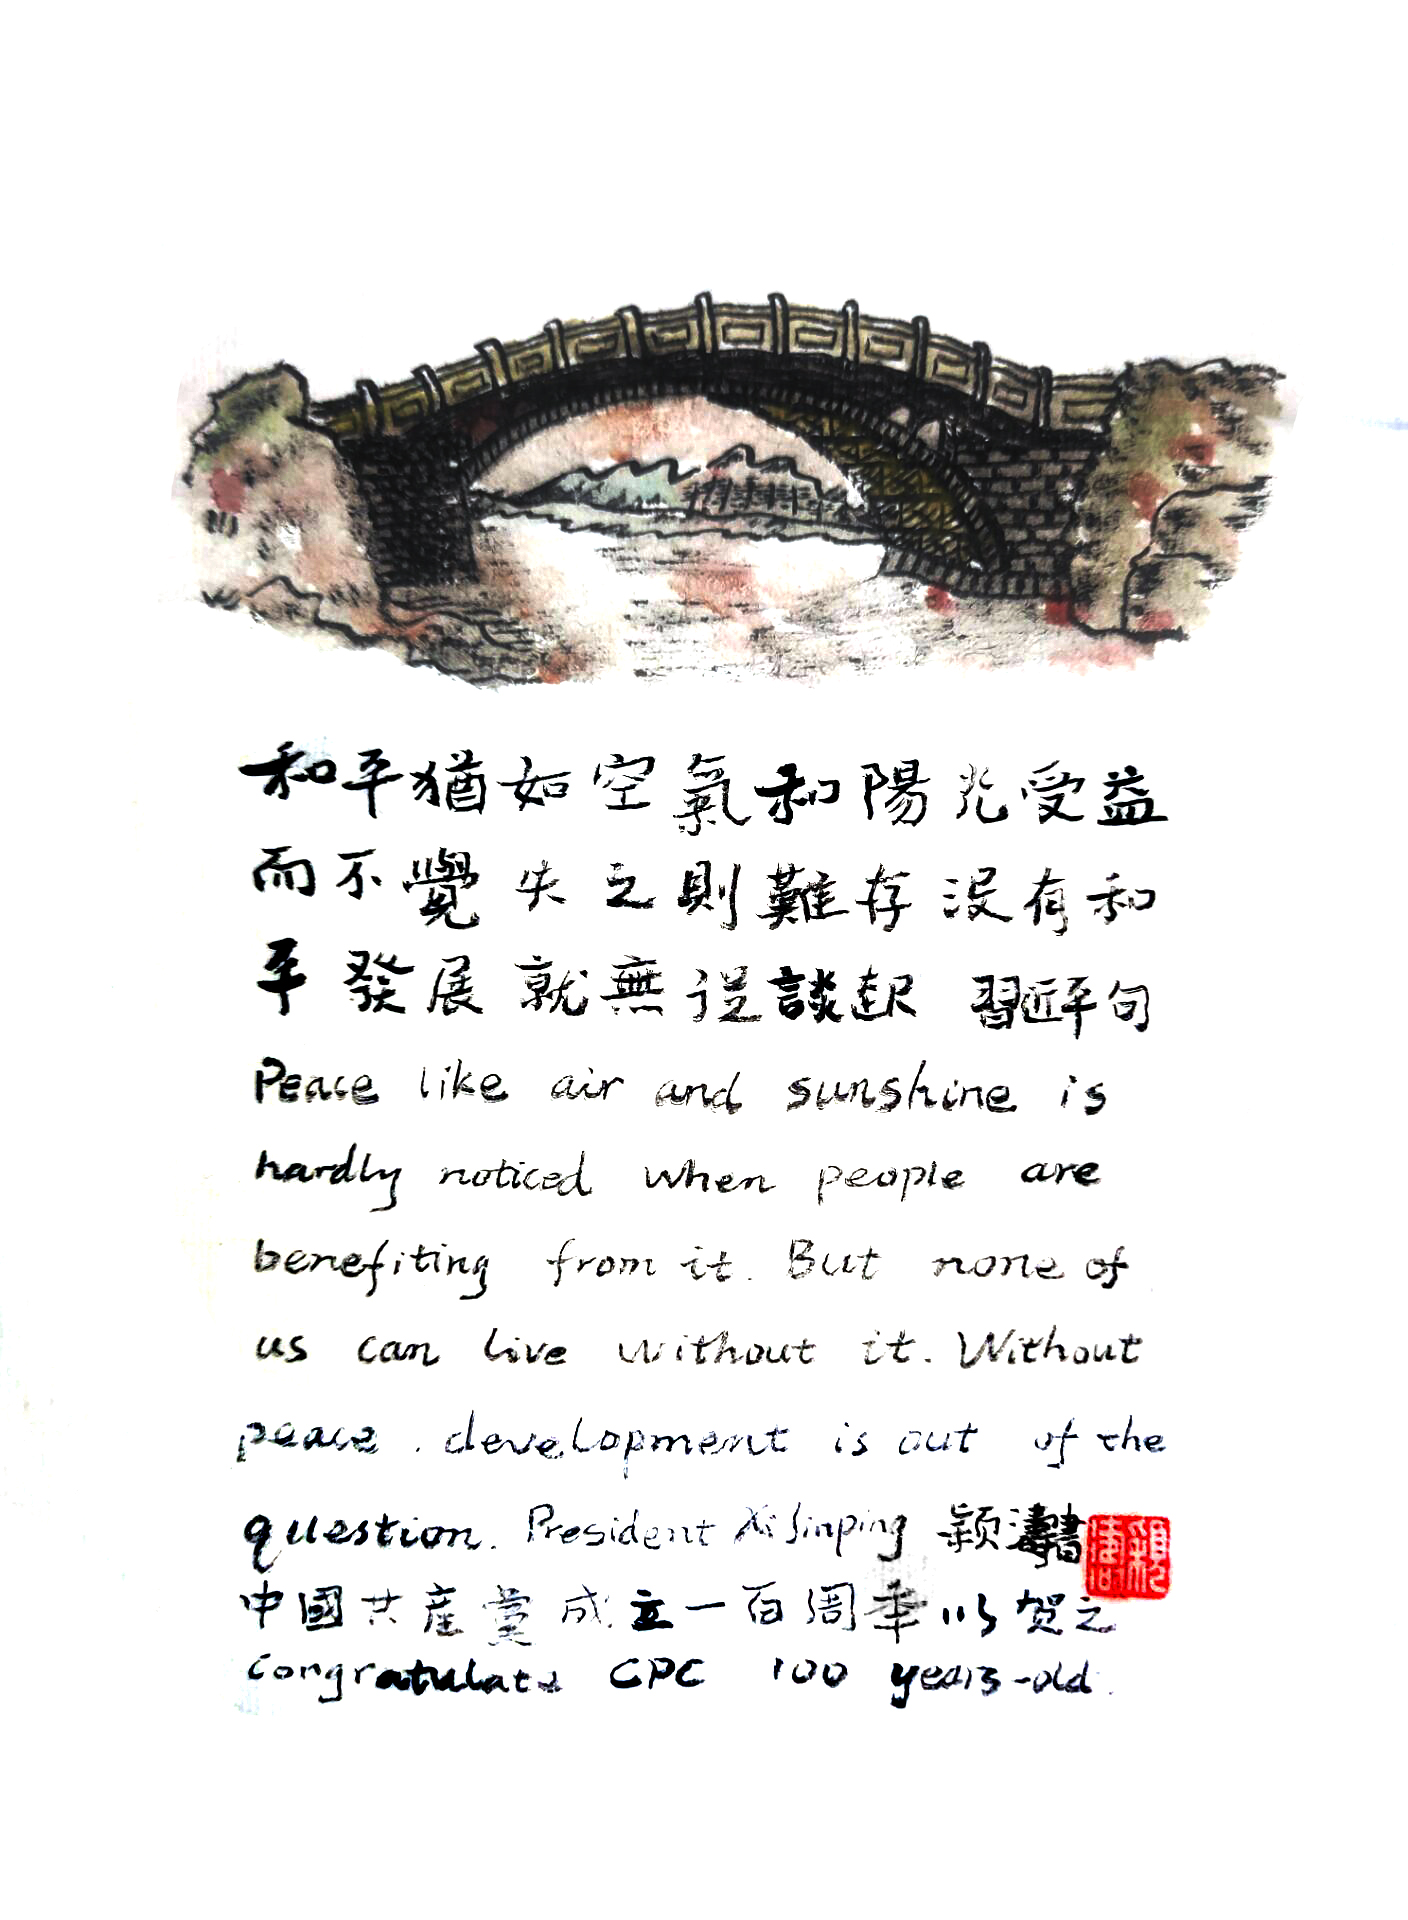 和平猶如空氣和陽光受益
而不覺失之則難存沒有和
平發展就無從談起 習近平句
Peace like air and sunshine is
hardly noticed when people are
benefiting from it. But none of
us can live without it. Without
peace. development is out of the
question. President Xi Jinping 颖濤書
中國共產黨成立一百周年以贺之
Congratulate CPC 100 years-old.